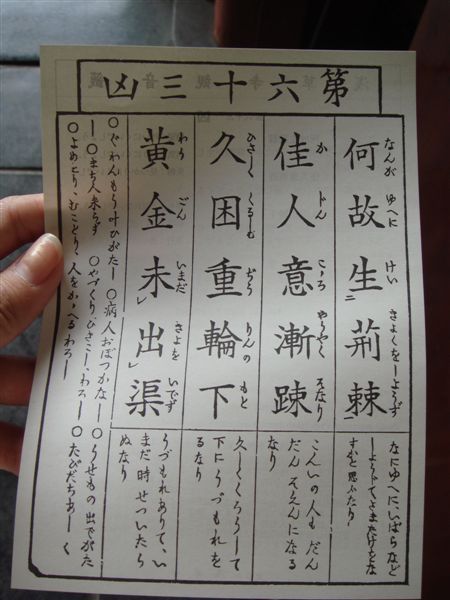 第六十三凶
何故生荊棘
なんが ゆへに けい きよくをしようず
なにゆへに、いばらなど
しようじて、さまたげをな
すかと思ふたり
佳人意漸踈
か じん こゝろ やうやく そなり
こんいの人も だん
だん そゑんになる
なり
久困重輪下
ひさしく くるしむ ぢう りんの もと
久しくくろうして
下にうづもれを
るなり
黄金未出渠
わう ごん いまだ きよを いでず
うづもれありて、い
まだ時せついたら
ぬなり
○ぐわんもう叶ひがたし ○病人おぼつかなし ○うせもの出でがた
し ○まち人来らず ○やづくり、ひきこし、わろし
○よめどり、むこどり、人をかゝへるわろし ○たびだちあしく